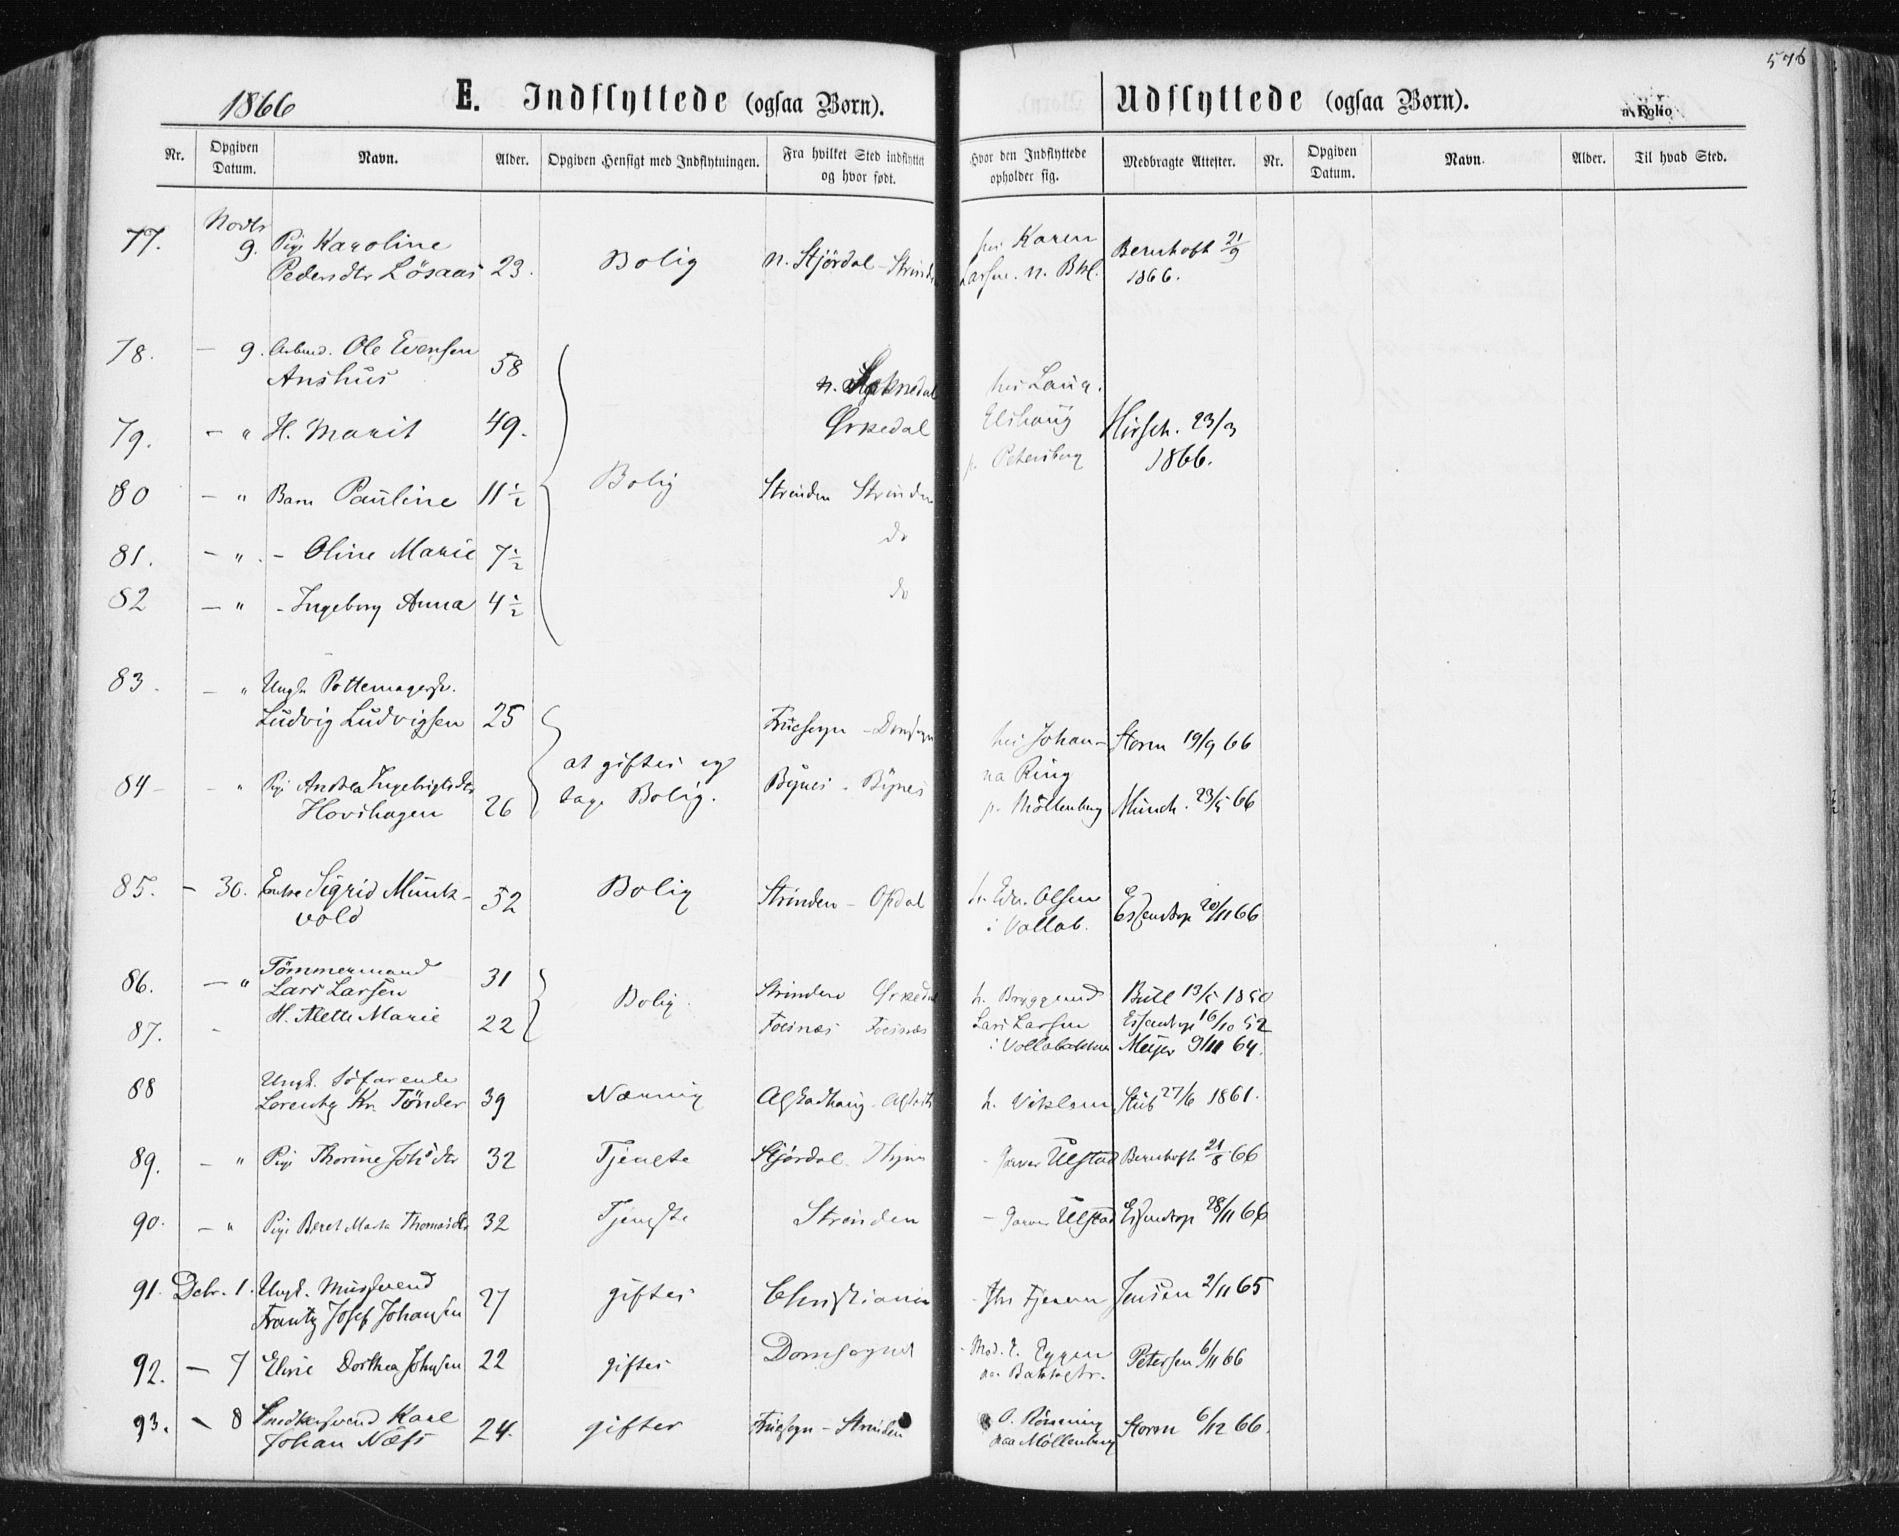 576
1866
E. Indflyttede (ogsaa Børn).
Udflyttede (ogsaa Børn).
Folio
Nr. Opgiven Datum. Navn. Alder. Opgiven Hensigt med Indflytningen. Fra hvilket Sted indflyttet og hvor født. Hvor den Indflyttede opholder sig. Medbragte Attester. Nr. Opgiven Datum. Navn. Alder. Til hvad Sted.
77. Novbr 9. Pige Karoline Pedersdtr Lösaas 23. Bolig N. Stjördal - Strinden hos Karen Larsen. N. Bkl. Bernhoft 21/9 1866.
78. — 9. Arbmd. Ole Evensen Anshus 58 Bolig n. Soknedal hos Laur. Elshaug p. Petersberg
79. — " H. Marit 49. Örkedal Hirsch. 23/3 1866.
80 — " Barn Pauline 11 1/2 Strinden Strinden
81. — " - Oline Marie 7 1/2 do
82 — " - Ingeborg Anna 4 1/2 do
83. — " Ungk. Pottemagersv. Ludvig Ludvigsen 25 at giftes og tage Bolig. Fruesogn - Domsogn hos Johanna Ring p. Möllenberg Storm 19/9 66
84 - - " Pige Andrea Ingebrigtsdtr Hovshagen 26 Bynes - Bynes Münch. 23/5 66
85. — 30. Enke Sigrid Munkvold 52 Bolig Strinden - Opdal h. Edv. Olsen i Vollab. Essendrop 20/11 66
86. — " Tömmermand Lars Larsen 31 Bolig. Strinden Örkedal h. Bryggemd Lars Larsen i Vollabakken Bull 13/5 1850
87. - H. Mette Marie 22 Fosnæs Fosnæs Essendrop 16/10 52 Meyer 9/11 64.
88 Ungk. Söfarende Lorentz Kr. Tönder 39 Næring Alstadhaug - Alstadh h. Stub 27/6 1861.
89. — " Pige Thorine Johsdtr 32 Tjeneste Stjördal - Garver Ulstad Bernhoft 21/8 66
90. — " Pige Beret Marta Thomasdtr 32 Tjeneste Strinden - Garver Ulstad Essendrop 28/11 66
91. Debr. 1. Ungk. Frantz Josef Johansen 27 giftes Christiania Jensen 2/11 65
92. — 7 Elvie Dorthea Johnsen 22 giftes Domsognet Mad. E. Eggen paa Bakkegtr. Petersen 6/11 66
93. — 8 Snedkersvend Karl Johan Næss 24. gifter Fruesogn - Strinden O. Rönning paa Möllenberg Storm 6/12 66.